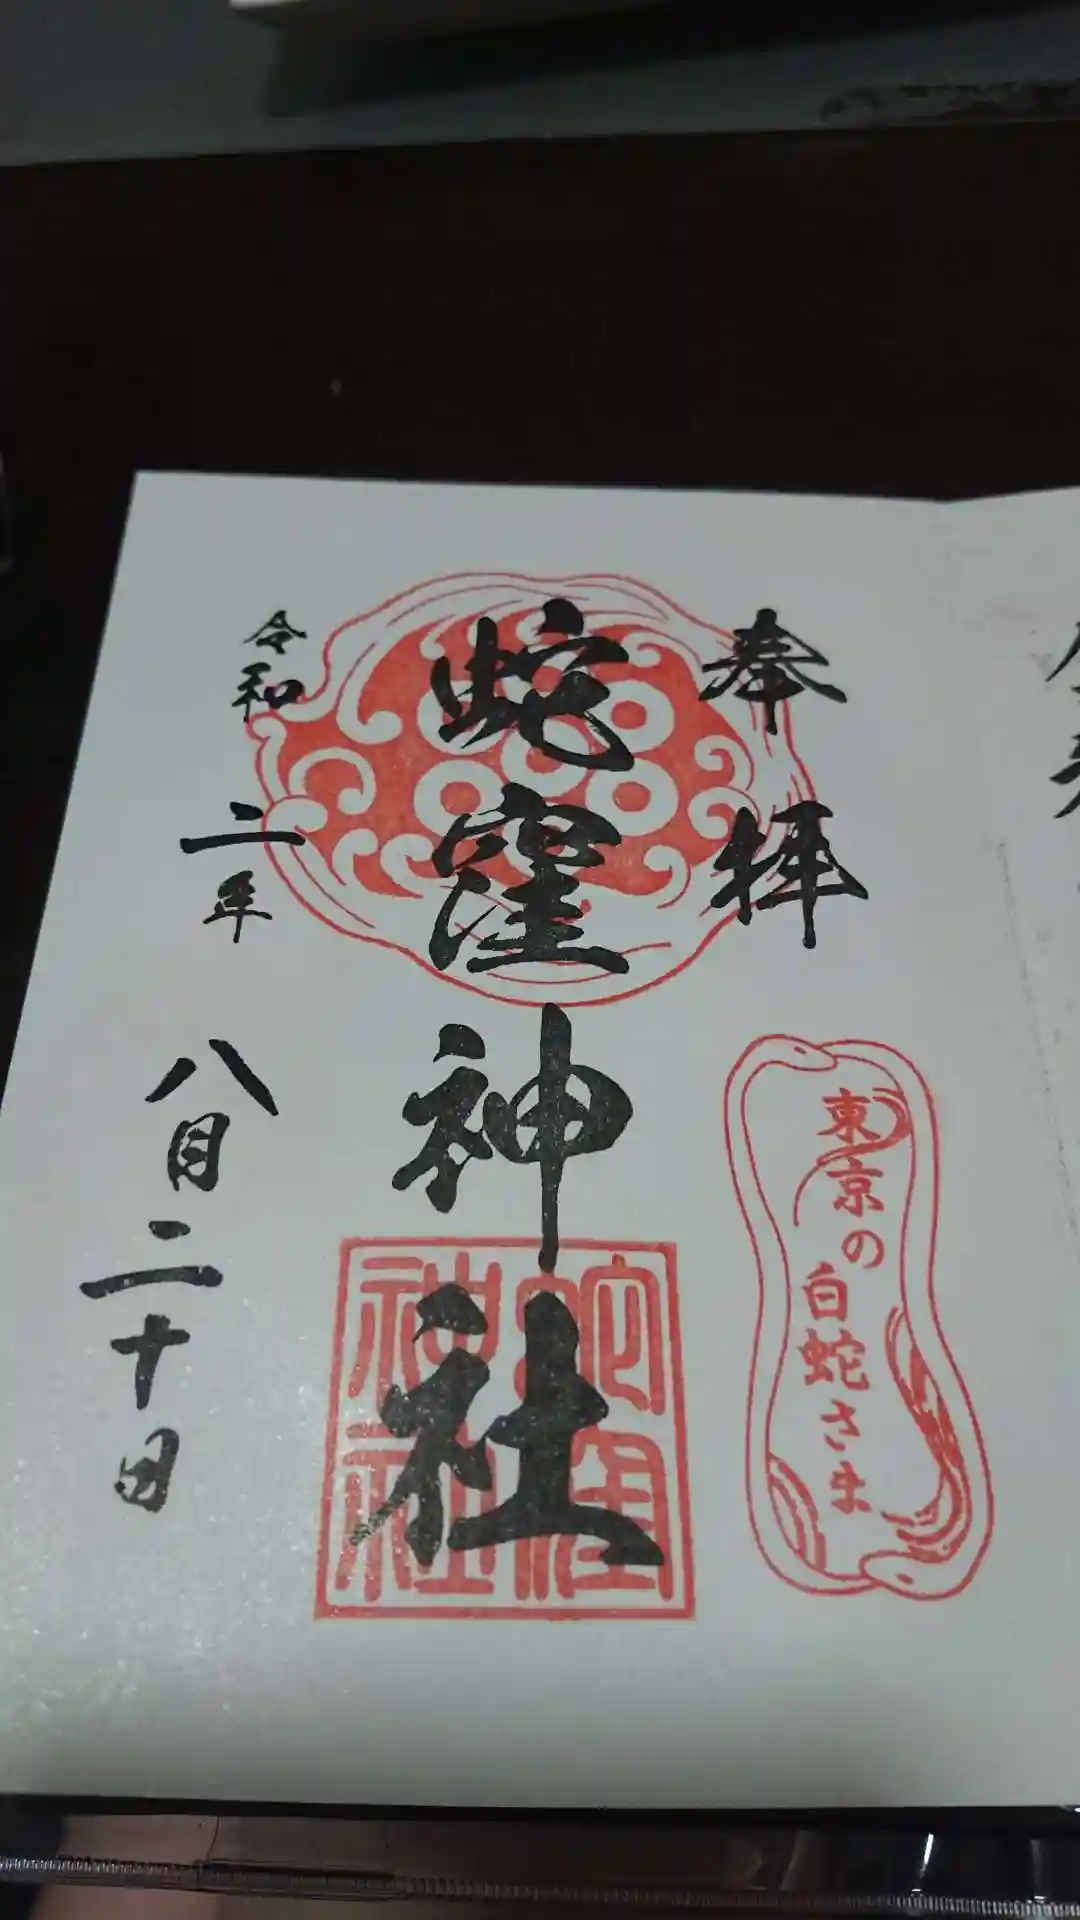 奉拝
東京の
白蛇さま
蛇窪神社
蛇窪
神社
令和二年
八月二十日